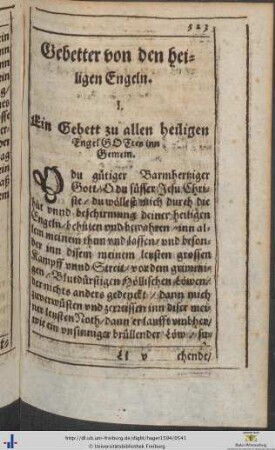 523
Gebetter von den hei-
ligen Engeln.
I.
Ein Gebett zu allen heiligen
Engel GOttes inn
Gemein.
O du gütiger Barmhertziger
Gott / O du süsser Jesu Chri-
ste / du wöllest mich durch die
hüt vnnd beschirmung deiner heiligen
Engeln / behüten vnd bewahren / inn al-
lem meinem thun vnd lassen / vnd beson-
der inn disem meinem letsten grossen
Kampff vnnd Streit / vor dem grimmi-
gen / Blutdürstigen Höllischen Löwen /
der nichts anders gedenckt / dann mich
zuverwüsten vnd zerreissen inn diser mei-
ner letsten Noth / dann er laufft vmbher /
wie ein vnsinniger brüllender Löw / su-
Ll v chende /
http://dl.ub.uni-freiburg.de/diglit/hager1594/0541
© Universitätsbibliothek Freiburg